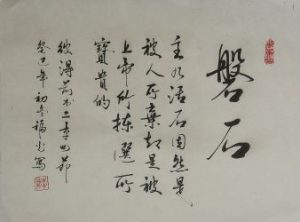 磐石
主乃活石固然是
被人所棄卻是被
上帝所揀選所
寶貴的
彼得前書二章四節
癸巳年初冬福永寫